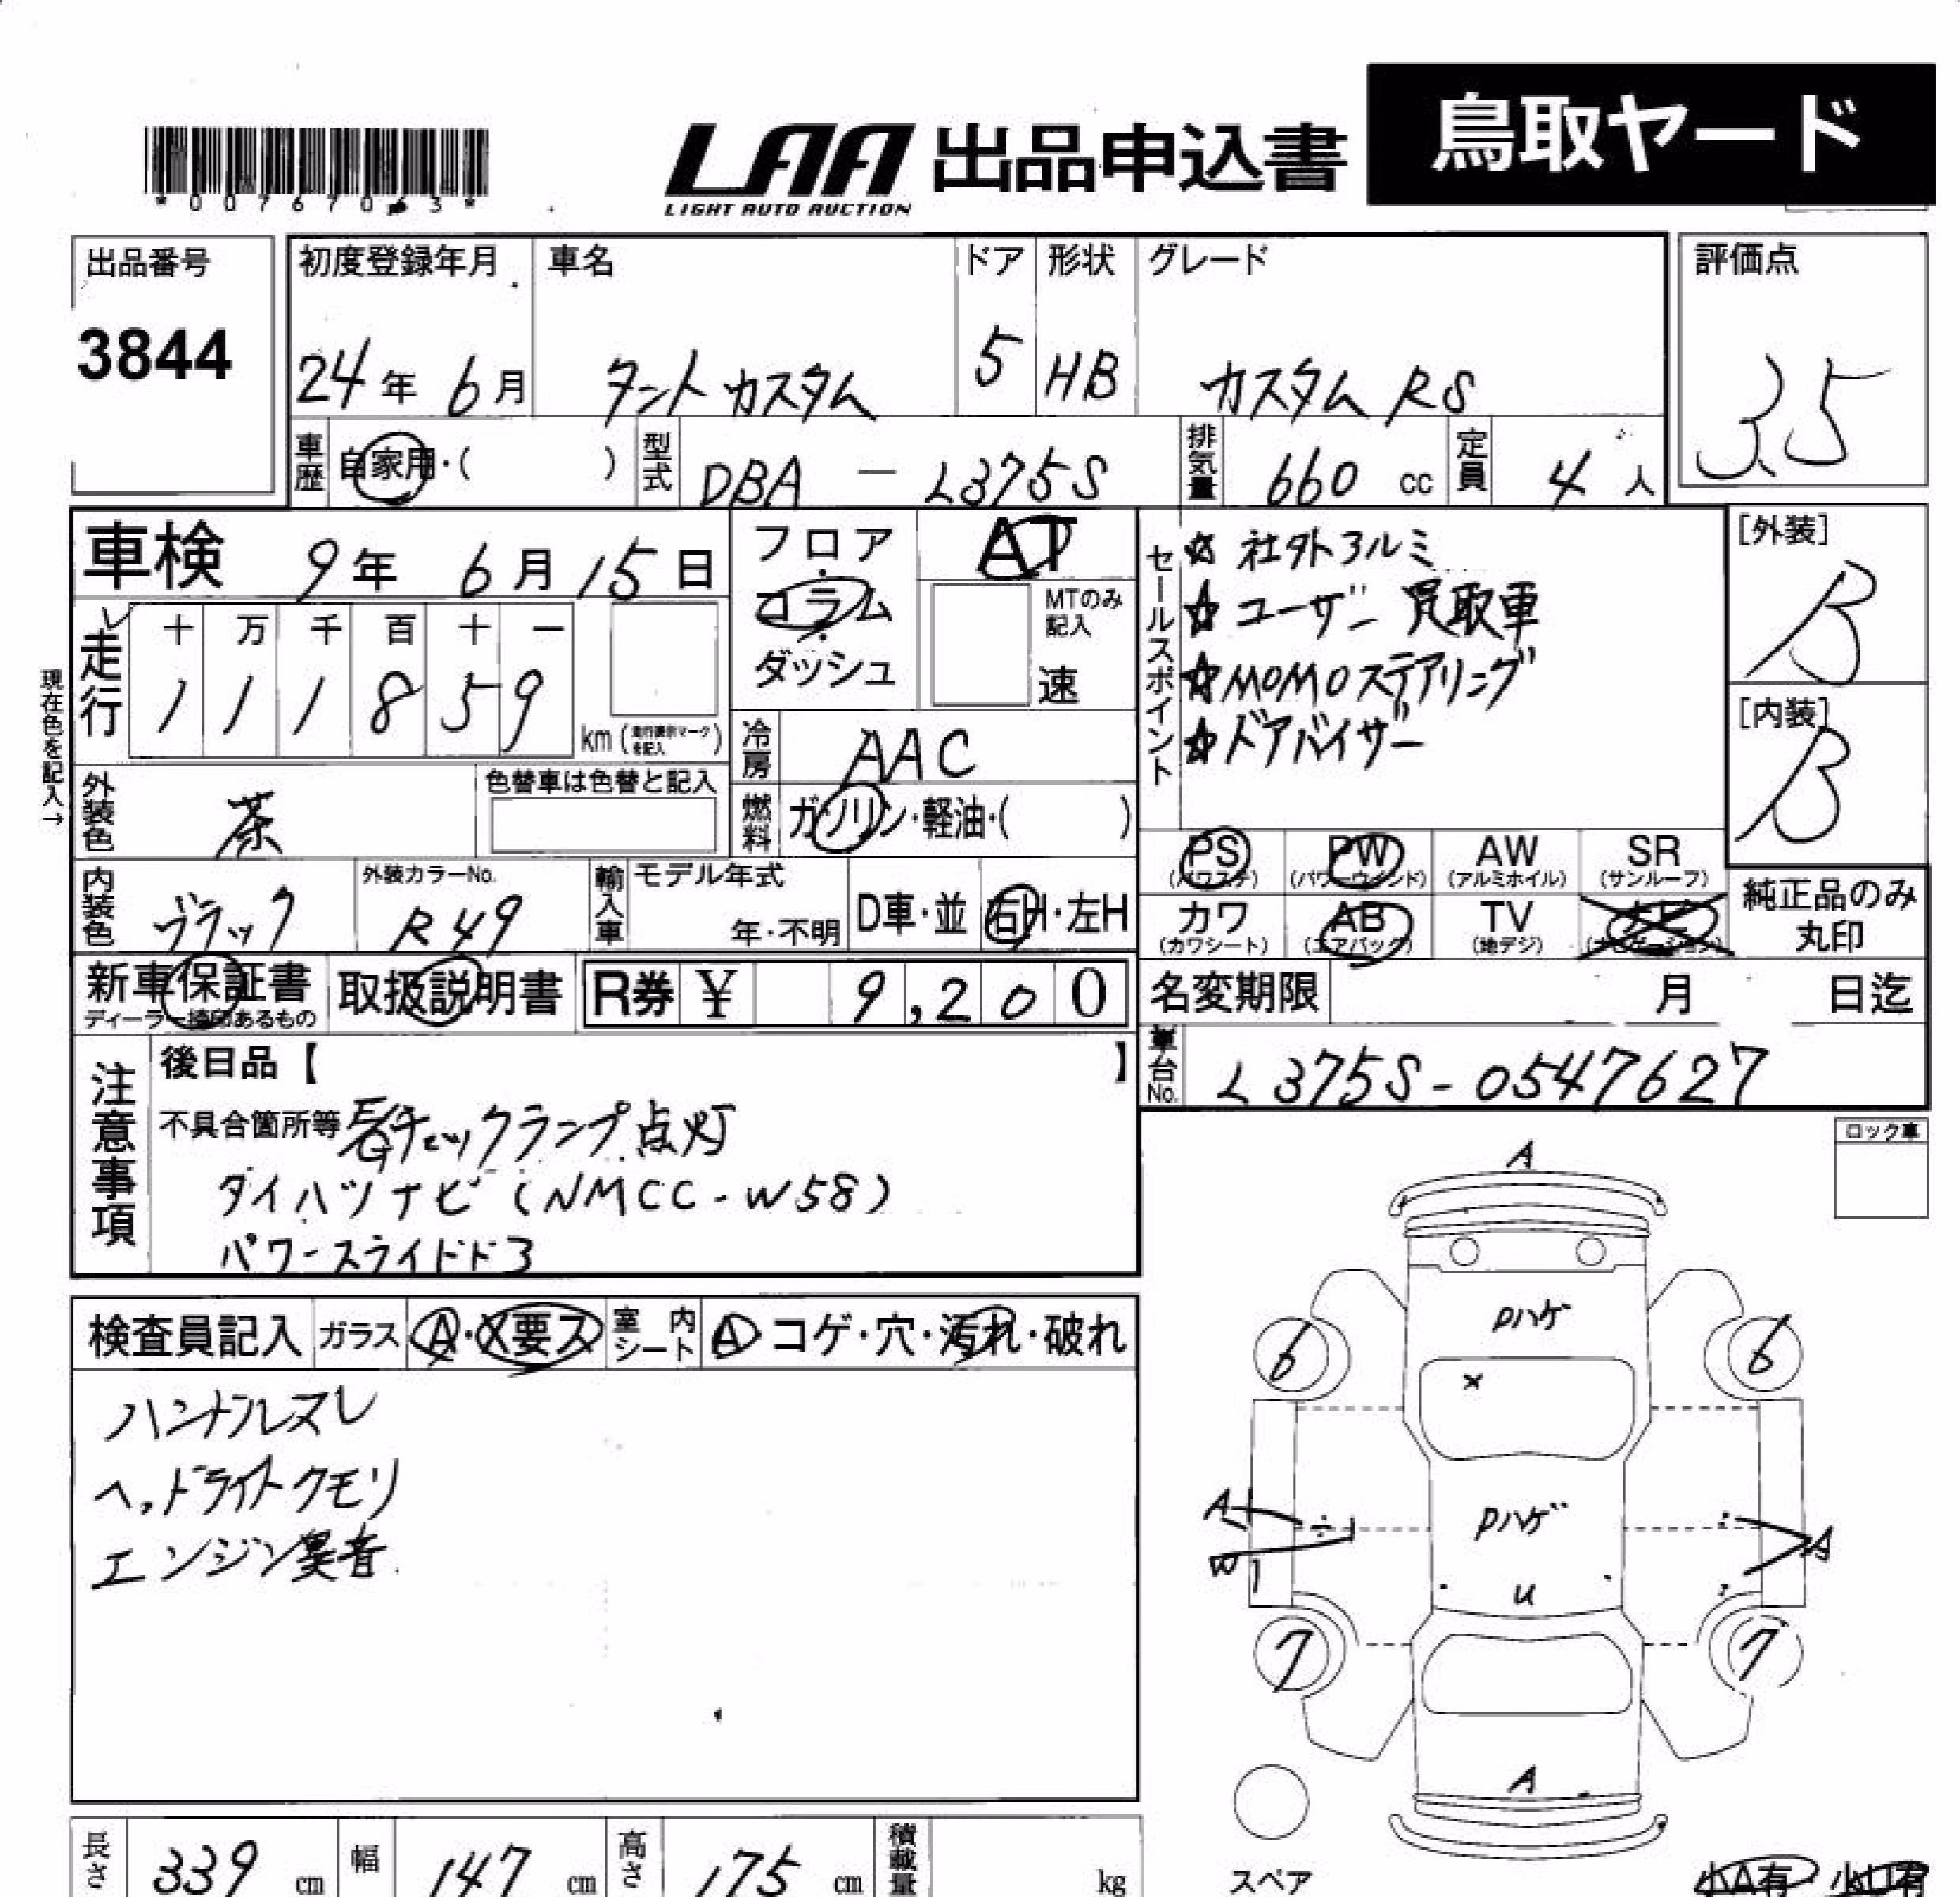 鳥取ヤード
LAA 出品申込書
LIGHT AUTO AUCTION
*00767063*
出品番号
3844
初度登録年月
24年 6月
車名
タントカスタム
ドア
5
形状
HB
グレード
カスタム RS
評価点
3.5
車歴
自家用・( )
型式
DBA - L375S
排気量
660 cc
定員
4 人
車検 9年 6月 15日
フロア・コラム・ダッシュ
AT
MTのみ記入
速
セールスポイント
☆ 社外アルミ
☆ ユーザー買取車
☆ MOMOステアリング
☆ ドアバイザー
[外装]
B
[内装]
B
現在色を記入→
走行
十 万 千 百 十 一
1 1 1 8 5 9
km (走行表示マークを記入)
冷房
AAC
外装色
茶
色替車は色替と記入
燃料
ガソリン・軽油・( )
PS
(パワステ)
PW
(パワーウインド)
AW
(アルミホイル)
SR
(サンルーフ)
カワ
(カワシート)
AB
(エアバック)
TV
(地デジ)
(ナビゲーション)
純正品のみ丸印
内装色
ブラック
外装カラーNo.
R49
輸入車
モデル年式
年・不明
D車・並
右H・左H
新車保証書
ディーラー捺印あるもの
取扱説明書
R券 ¥ 9,200
名変期限 月 日迄
車台No.
L375S-0547627
注意事項
後日品【 】
不具合箇所等
チェックランプ点灯
ダイハツナビ (NMCC-W58)
パワースライドドア
ロック車
検査員記入
ガラス
A・X要ス
室内シート
A・コゲ・穴・汚れ・破れ
ハンドルスレ
ヘッドライトクモリ
エンジン異音
A
Pハゲ
6
6
X
A1
W1
Pハゲ
A
U
7
7
A
スペア
小A有・小U有
長さ
339 cm
幅
147 cm
高さ
175 cm
積載量
kg